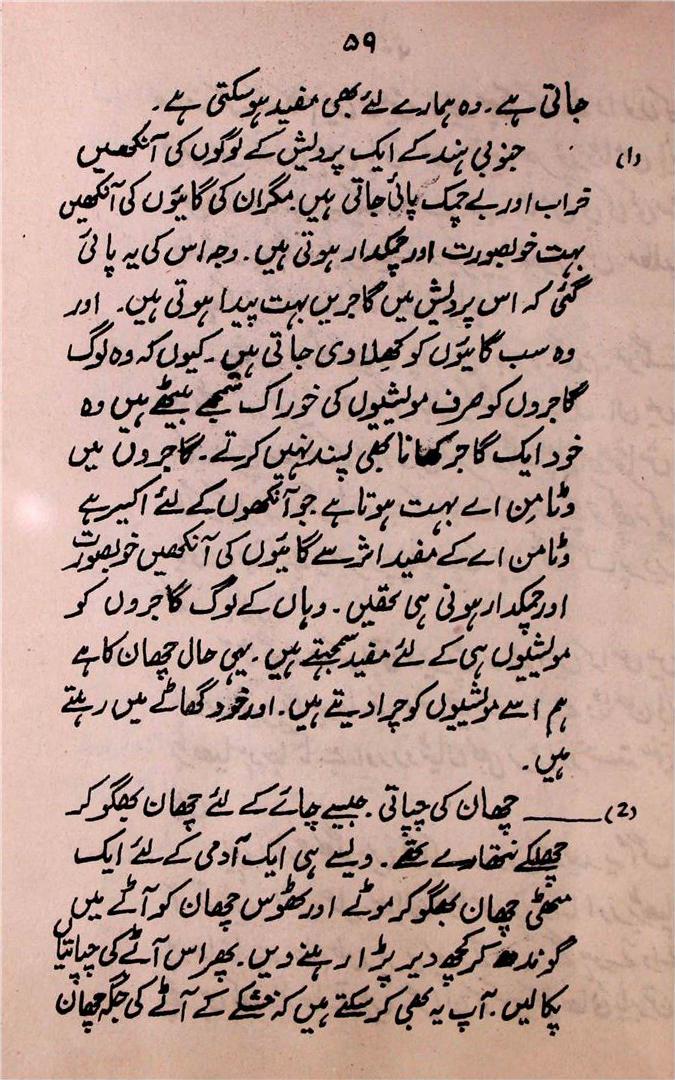 ۵۹
جاتی ہے۔ وہ ہمارے لئے بھی مفید ہو سکتی ہے۔
(۱) جنوبی ہند کے ایک پردیش کے لوگوں کی آنکھیں
خراب اور بے چمک پائی جاتی ہیں۔ مگر ان کی گائیوں کی آنکھیں
بہت خوبصورت اور چمکدار ہوتی ہیں۔ وجہ اس کی یہ پائی
گئی کہ اس پردیش میں گاجریں بہت پیدا ہوتی ہیں۔ اور
وہ سب گائیوں کو کھلا دی جاتی ہیں۔ کیوں کہ وہ لوگ
گاجروں کو صرف مویشیوں کی خوراک سمجھے بیٹھے ہیں وہ
خود ایک گاجر کھانا بھی پسند نہیں کرتے۔ گاجروں میں
وٹامِن اے بہت ہوتا ہے جو آنکھوں کے لئے اکسیر ہے
وٹامن اے کے مفید اثر سے گائیوں کی آنکھیں خوبصورت
اور چمکدار ہونی ہی تھیں۔ وہاں کے لوگ گاجروں کو
مویشیوں ہی کے لئے مفید سمجھتے ہیں۔ یہی حال چھان کا ہے
ہم اسے مویشیوں کو چرا دیتے ہیں۔ اور خود گھاٹے میں رہتے
ہیں۔
(2) ــــــ چھان کی چپاتی۔ جیسے چائے کے لئے چھان بھگو کر
چھلکے نتھارے تھے۔ ویسے ہی ایک آدمی کے لئے ایک
مٹھی چھان بھگو کر موٹے اور ٹھوس چھان کو آٹے میں
گوندھ کر کچھ دیر پڑا رہنے دیں۔ پھر اس آٹے کی چپاتیاں
پکالیں۔ آپ یہ بھی کر سکتے ہیں کہ خشکے کے آٹے کی جگہ چھان